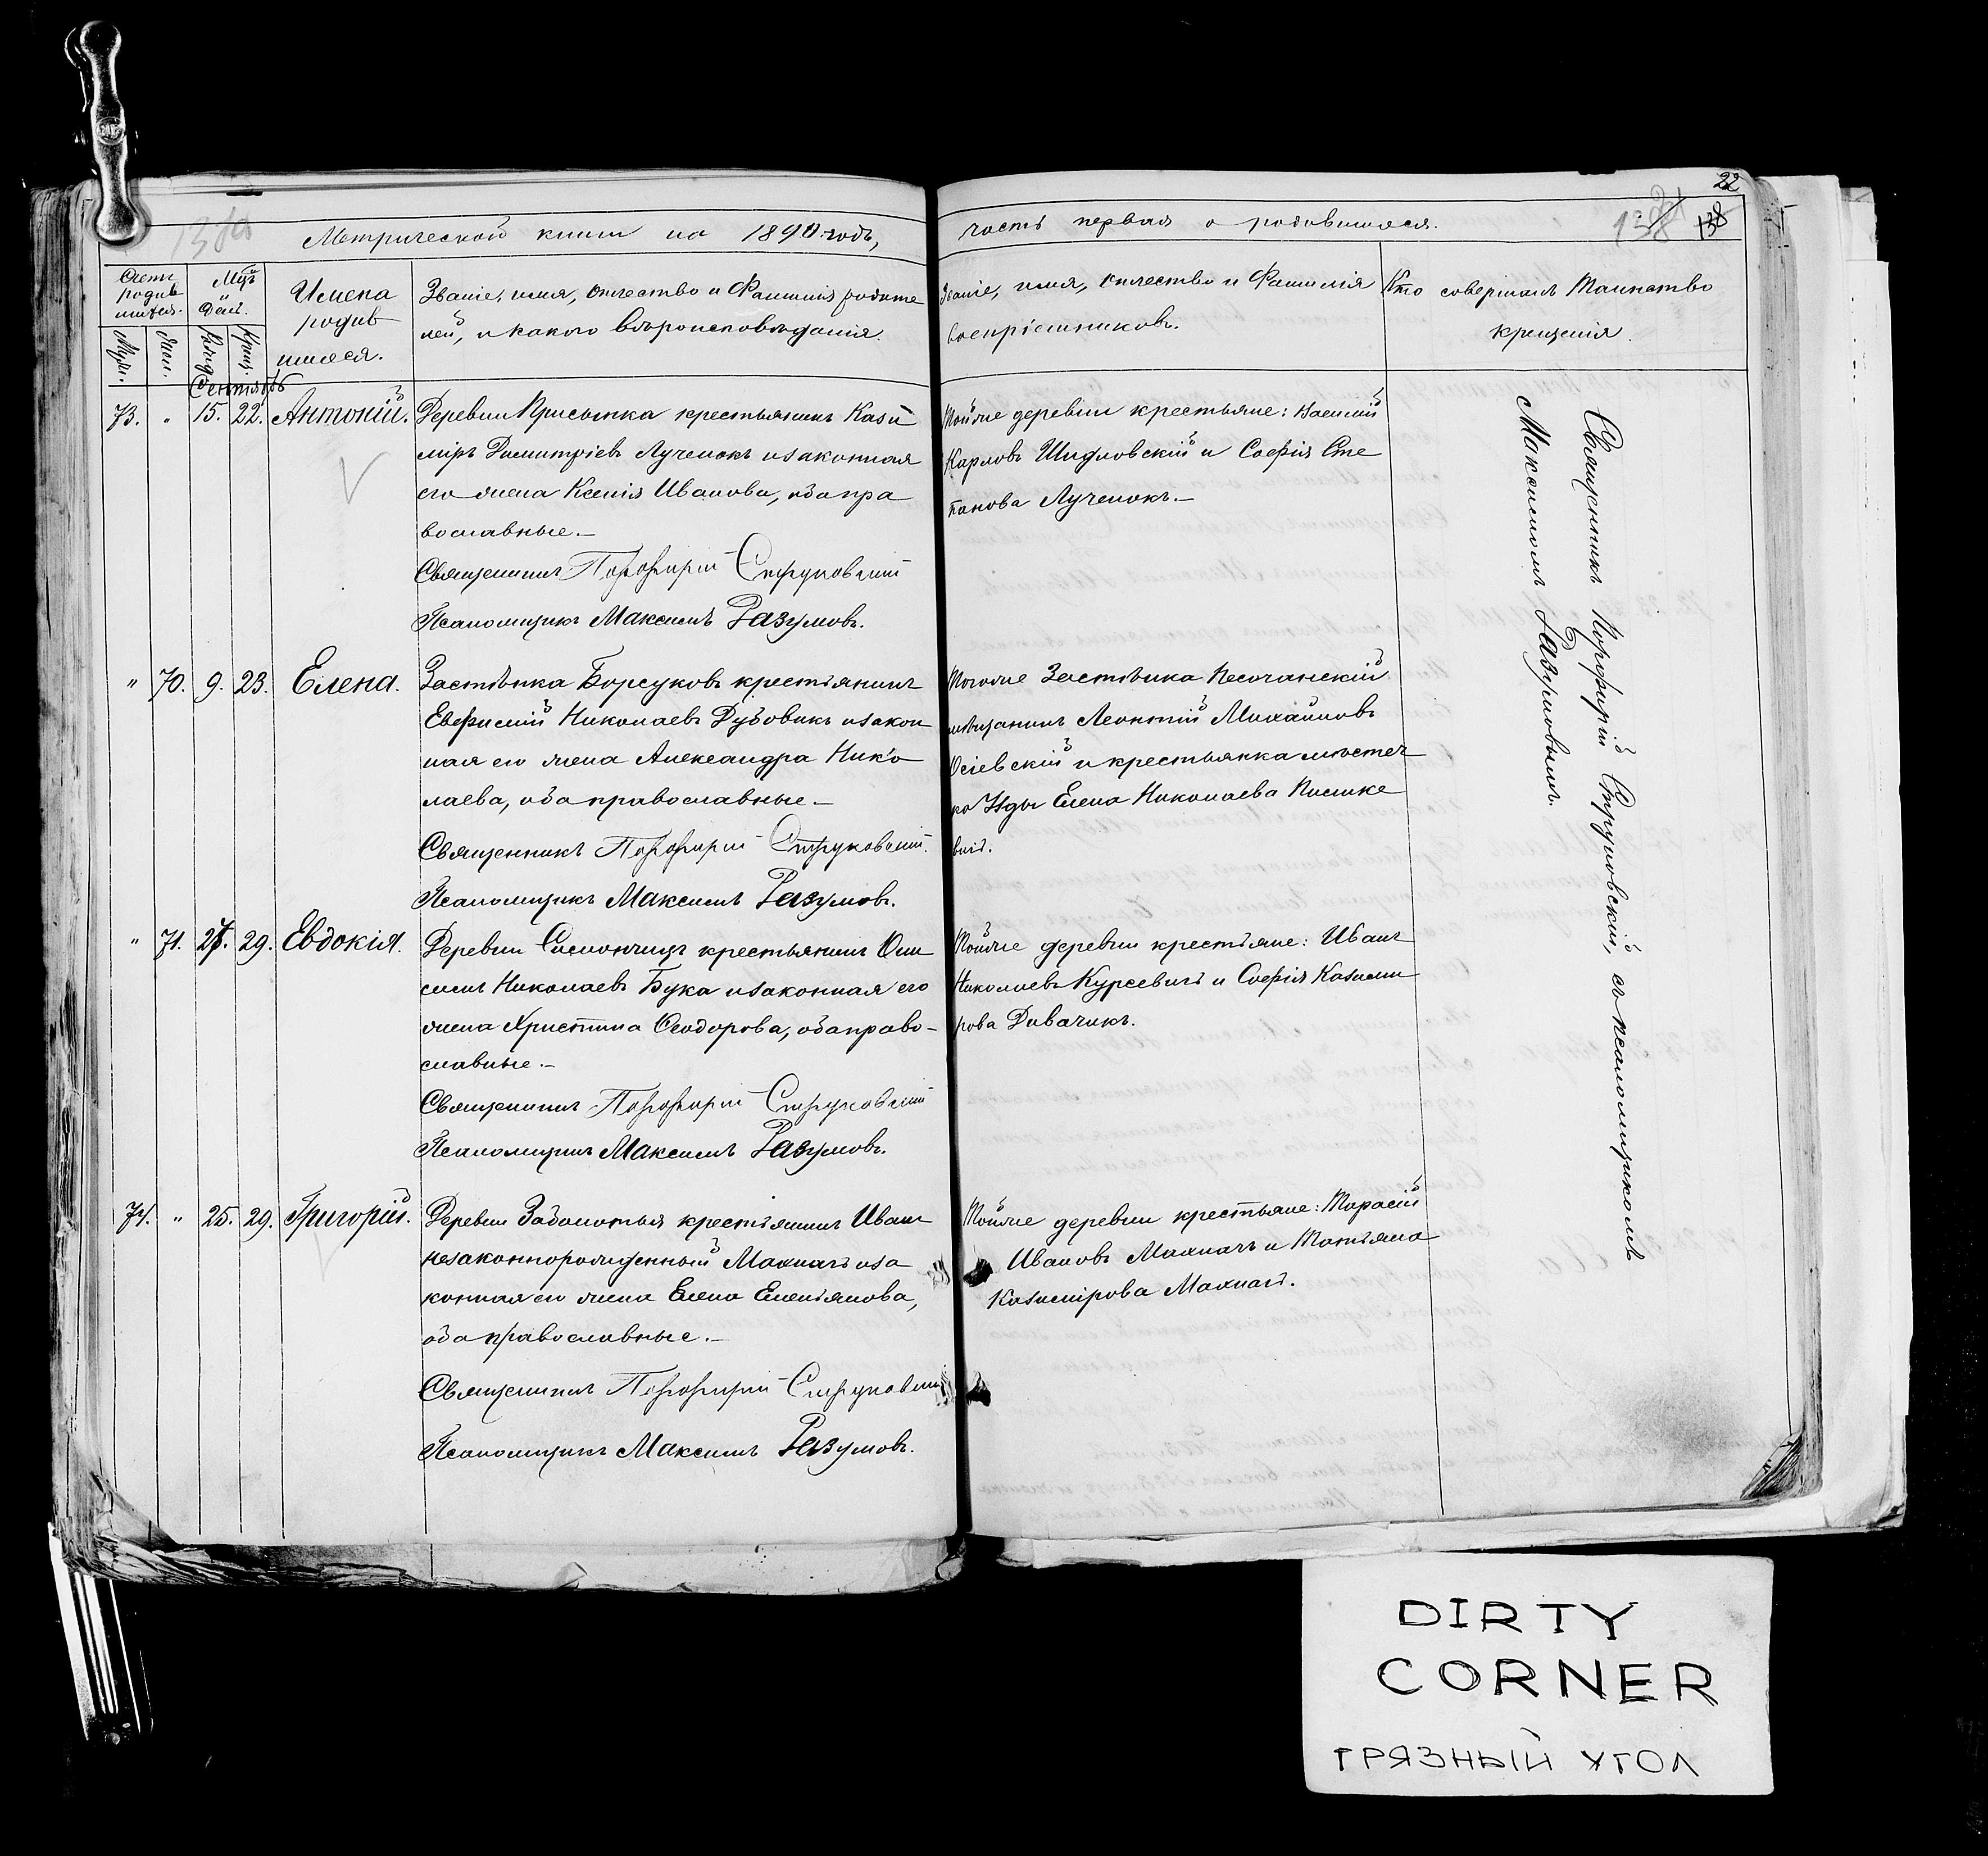 22
138
Метрической книги на 1890 годъ,
часть первая о родившихся.
Счетъ родив шихся.
Муж.
Жен.
Мѣс. и день.
Рожд.
Крещ.
Имена родив шихся.
Званіе, имя, отчество и Фамилія родите
лей, и какого вѣроисповѣданія.
Званіе, имя, отчество и Фамилія
воспріемниковъ.
Кто совершалъ Таинство
крещенія.
Сентябрь
73. " 15. 22. Антоній.
Деревни Присынка крестьянинъ Кази
міръ Димитріевъ Лученокъ и законная
его жена Ксенія Иванова, оба пра
вославные.—
Священникъ Порфирій Струковскій
Псаломщикъ Максимъ Разумовъ.
Тойже деревни крестьяне: Василій
Карловъ Шидловскій и Софія Сте
панова Лученокъ.—
" 70. 9. 23. Елена.
Застѣнка Борсуковъ крестьянинъ
Евфимій Николаевъ Дубовикъ и закон
ная его жена Александра Нико
лаева, оба православные.—
Священникъ Порфирій Струковскій.
Псаломщикъ Максимъ Разумовъ.
Тогоже Застѣнка Песочанскій
мѣщанинъ Леонтій Михайловъ
Осіевскій и крестьянка мѣстеч
ка Узды Елена Николаева
вичъ.
" 71. 27. 29. Евдокія.
Деревни крестьянинъ Они
симъ Николаевъ Бука и законная его
жена Христина Ѳеодорова, оба право-
славные.—
Священникъ Порфирій Струковскій
Псаломщикъ Максимъ Разумовъ.
Тойже деревни крестьяне: Иванъ
Николаевъ Курсевичъ и Софія Казими
рова Дивачикъ.
74. " 25. 29. Григорій.
Деревни Заболотья крестьянинъ Иванъ
незаконнорожденный Махначъ и за
конная его жена Елена Емельянова,
оба православные.—
Священникъ Порфирій Струковскій
Псаломщикъ Максимъ Разумовъ.
Тойже деревни крестьяне: Тарасій
Ивановъ Махначъ и Татьяна
Казимірова Махначъ.
Священникъ Порфирій Струковскій, съ псаломщикомъ
Максимомъ Разумовымъ.
DIRTY
CORNER
ГРЯЗНЫЙ УГОЛ